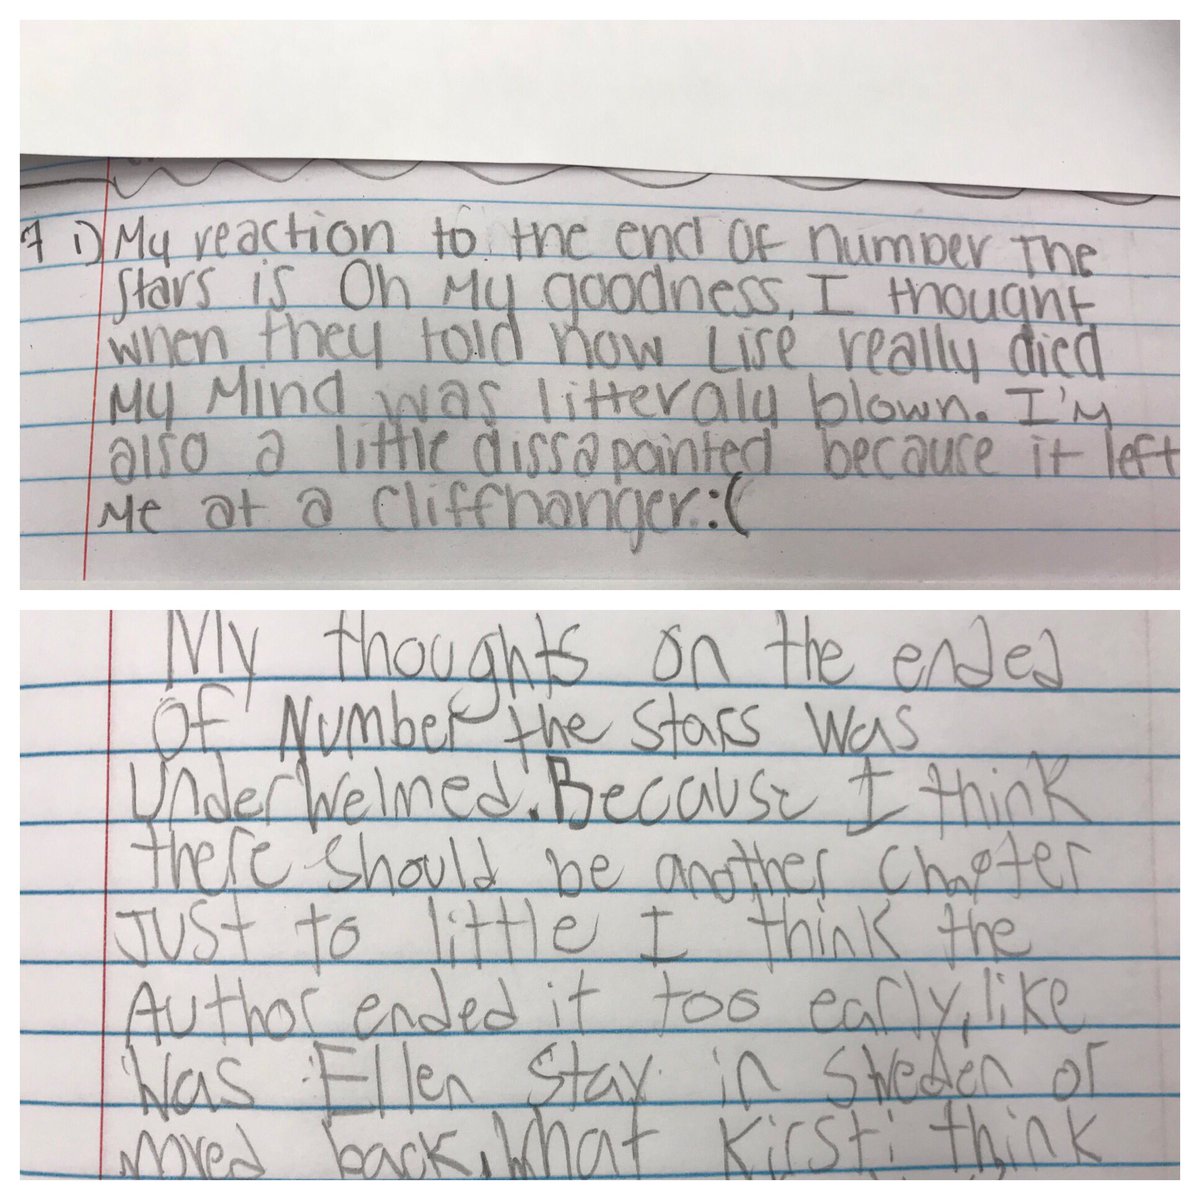 7 1) My reaction to the end of number The
stars is Oh My goodness, I thought
when they told how Lise really died
My Mind was litteraly blown. I'M
also a little dissapainted because it left
Me at a cliffhanger. :(
My thoughts on the ended
Of Number the Stars was
UnderWelmed. Because I think
there should be another chapter
JUSt to little I think the
Author ended it too early, like
Was Ellen Stay in Sweden or
moved back, What Kirsti think